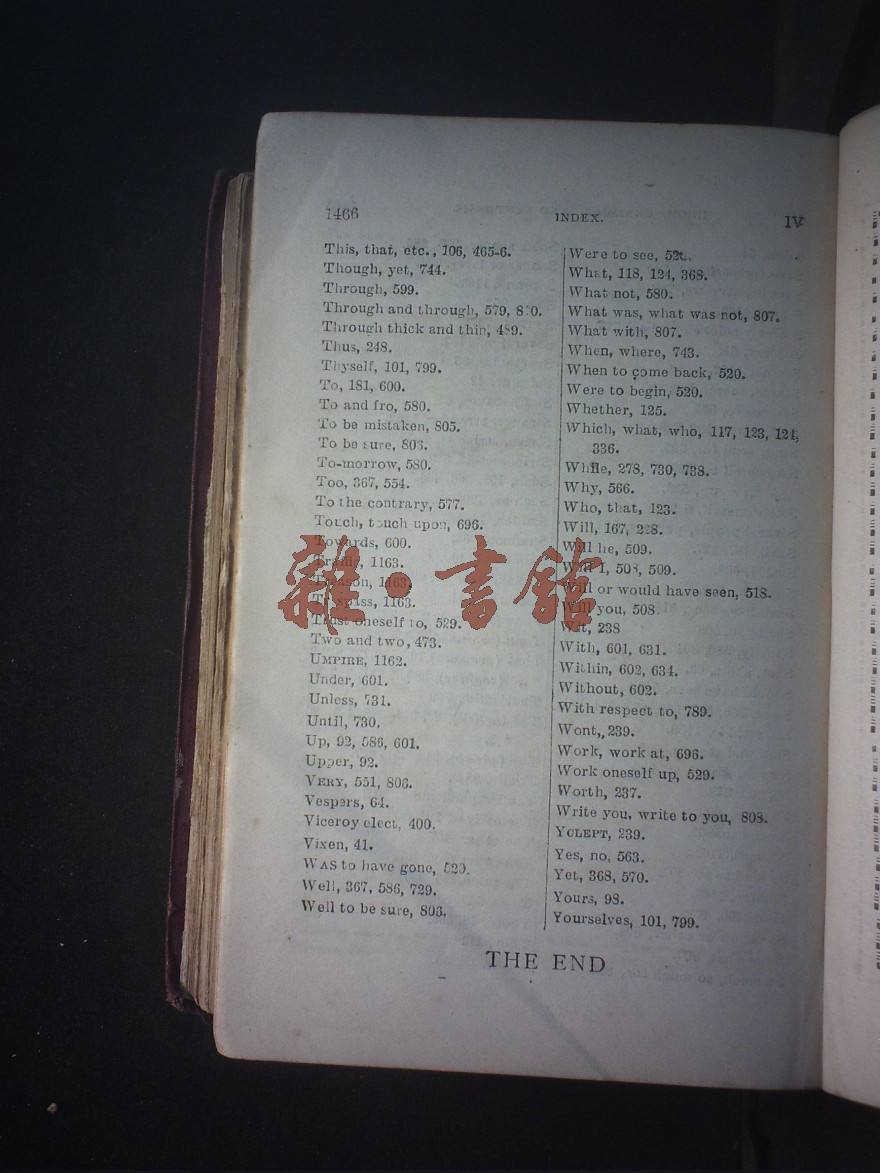 1466
INDEX.
IV
This, that, etc., 106, 465-6.
Though, yet, 744.
Through, 599.
Through and through, 579,
Through thick and thin,
Thus, 248.
Thyself, 101, 799.
To, 181, 600.
To and fro, 580.
To be mistaken, 805.
To be sure, 803.
To-morrow, 580.
Too, 367, 554.
To the contrary, 577.
Touch, touch upon, 696.
Towards, 600.
1163.
Treason, 1163.
Trespass, 1163.
Trust oneself to, 529.
Two and two, 473.
UMPIRE, 1162.
Under, 601.
Unless, 731.
Until, 730.
Up, 92, 586, 601.
Upper, 92.
VERY, 551, 806.
Vespers, 64.
Viceroy elect, 400.
Vixen, 41.
WAS to have gone, 520.
Well, 367, 586, 729.
Well to be sure, 803.
Were to see,
What, 118, 124, 368.
What not, 580.
What was, what was not, 807.
What with, 807.
When, where, 743.
When to come back, 520.
Were to begin, 520.
Whether, 125.
Which, what, who, 117, 123, 124,
336.
While, 278, 730, 738.
Why, 566.
Who, that, 123.
Will, 167, 228.
Will he, 509.
Will I, 508, 509.
Will or would have seen, 518.
Will you, 508.
Wit, 238
With, 601, 631.
Within, 602, 634.
Without, 602.
With respect to, 789.
Wont,, 239.
Work, work at, 696.
Work oneself up, 529.
Worth, 237.
Write you, write to you, 808.
YCLEPT, 239.
Yes, no, 563.
Yet, 368, 570.
Yours, 98.
Yourselves, 101, 799.
THE END
雜·書館